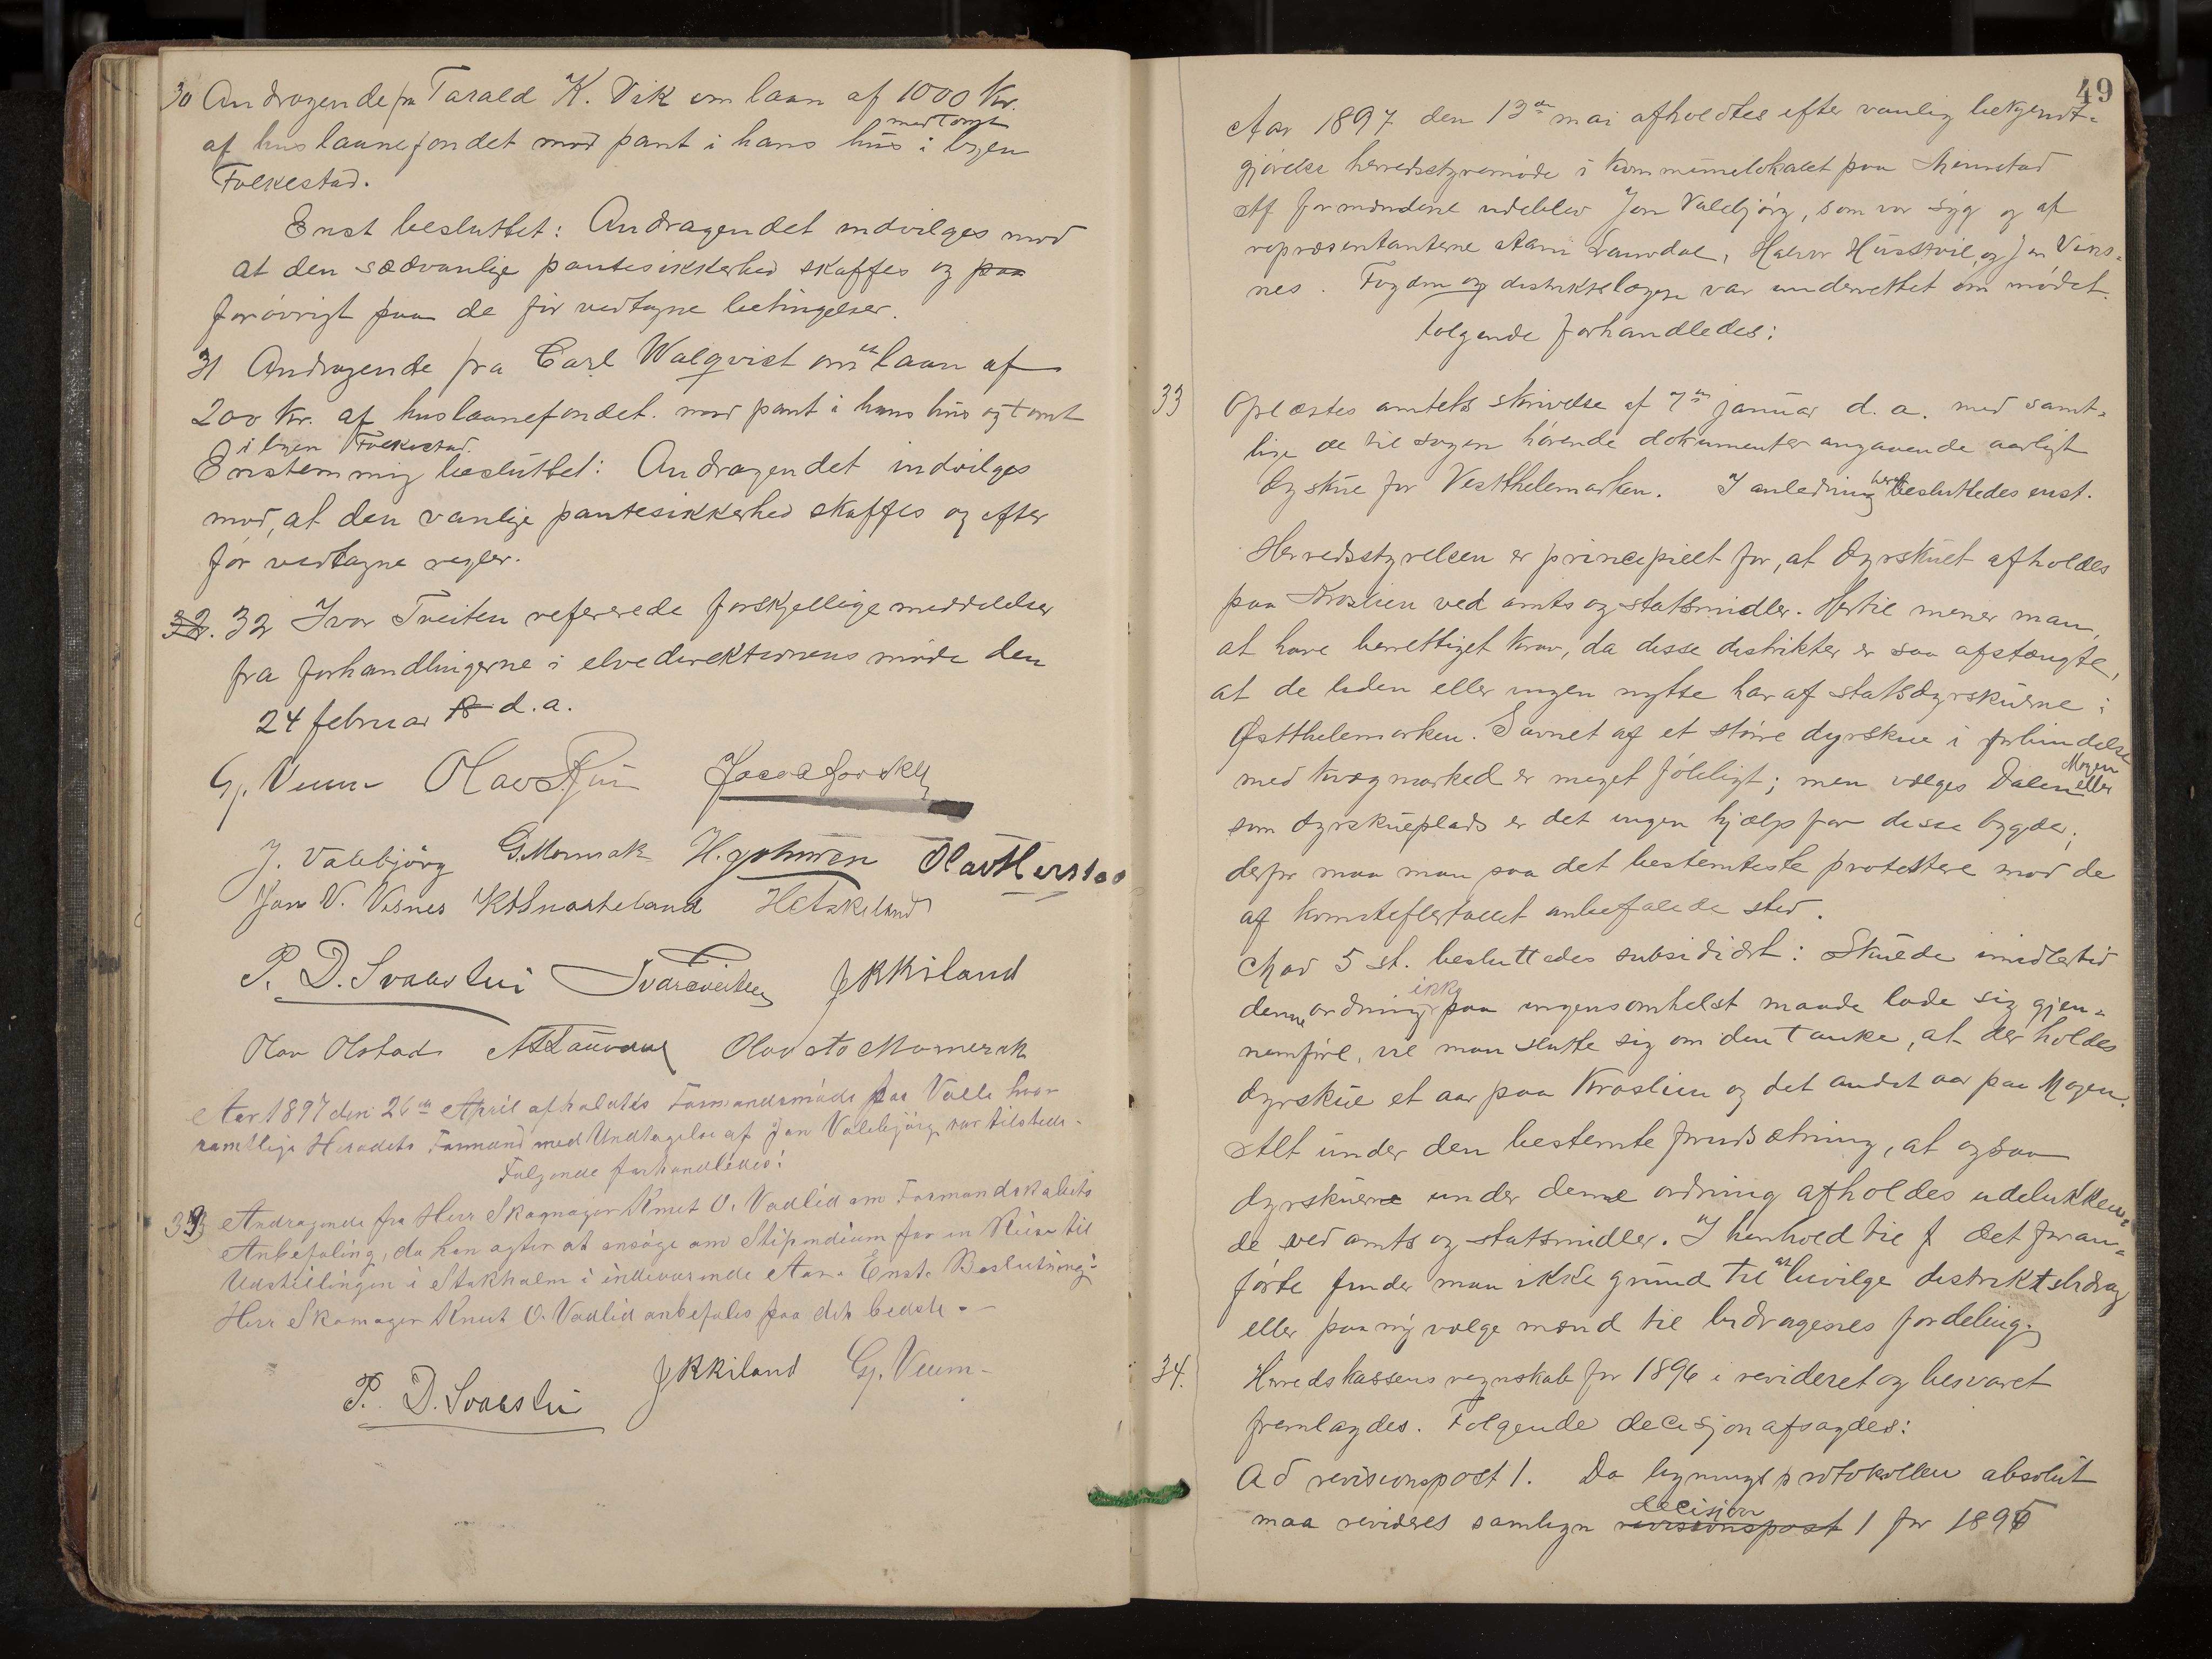 30 Andragende fra Tarald K. Vik om laan af 1000 Kr.
af huslaanefondet mod pant i hans hus med tomt i byen
Folkestad.
Enst besluttet: Andragendet indvilges mod
at den sædvanlige pantesikkerhed skaffes og paa
forøvrigt paa de før vedtagne betingelser.
31 Andragende fra Carl Walqvist om et laan af
200 Kr. af huslaanefondet mod pant i hans hus og tomt
i byen Folkestad.
Enstemmig besluttet: Andragendet indvilges
mod, at den vanlige pantesikkerhed skaffes og efter
før vedtagne regler.
32. 32 Ivar Tveiten refererede forskjellige meddelelser
fra forhandlingerne i elvedirektionens møde den
24 februar 18 d.a.
Gj. Veum Olav
J. Valebjörg G. Momrak
Jon V. Visnes
P. D. Svaastui Ivar Tveiten J K Kiland
Olav Olstad Olav Momrak
Aar 1897 den 26de April afholdtes Formandsmøde paa Valle hvor
samtlige Heredets Formænd med Undtagelse af Jon Valebjörg var tilstede.
Følgende forhandledes:
33 Andragende fra Herr Skomager Knut O. Vadlid om Formandskabets
Anbefaling, da han agter at ansøge om Stipendium for en Reise til
Udstillingen i Stokholm i indeværende Aar. Enst. Beslutning:
Herr Skomager Knut O. Vadlid anbefales paa det bedste.
P. D. Svaastui J K Kiland Gj. Veum
49
Aar 1897 den 13de mai afholdtes efter vanlig bekjendt-
gjørelse herredsstyremøde i kommunelokalet paa
Af formændene udeblev Jon Valebjørg, som var syg og af
repræsentanterne Aani Lauvdal, Halvor og Jon Vins-
nes. Fogden og distriktslægen var underrettet om mødet.
Følgende forhandledes:
33 Oplæstes amtets skrivelse af 7de januar d.a. med samt-
lige de til sagen hørende dokumenter angaaende aarligt
dyrskue for Vestthelemarken. I anledning heraf besluttedes enst.
Herredsstyrelsen er principielt for, at dyrskuet afholdes
paa Kroslien ved amts og statsmidler. Hertil mener man
at have berettiget krav, da disse distrikter er saa afstængte,
at de liden eller ingen nytte har af statsdyrskuerne i
Østthelemarken. Savnet af et større dyrskue i forbindelse
med kvægmarked er meget føleligt; men vælges Dalen eller Mogen
som dyrskueplads er det ingen hjælp for disse bygder;
derfor maa man paa det bestemteste protestere mod de
af komiteflertallet anbefalede sted.
Mod 5 st. besluttedes subsidiært: Skulde imidlertid
denne ordning ikke paa ingensomhelst maade lade sig gjen-
nemføre, vil man slutte sig om den tanke, at der holdes
dyrskue et aar paa Kroslien og det andet aar paa Mogen.
Alt under den bestemte forudsætning, at ogsaa
dyrskuerne under denne ordning afholdes udelukken-
de ved amts og statsmidler. I henhold til f det foran-
førte finder man ikke grund til at bevilge distriktsbidrag
eller paany vælge mænd til bidragenes fordeling.
34. Herredskassens regnskab for 1896 i revideret og besvaret
fremlagdes. Følgende decisjon afsagdes:
Ad revisionspost 1. Da ligningsprotokollen absolut
maa revideres samlign revisionspost decisjon 1 for 1895